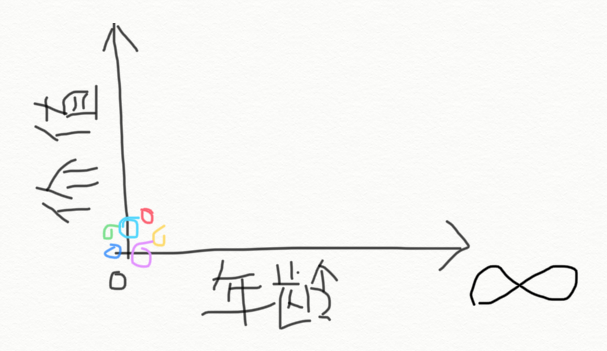 价值
0
年龄
∞